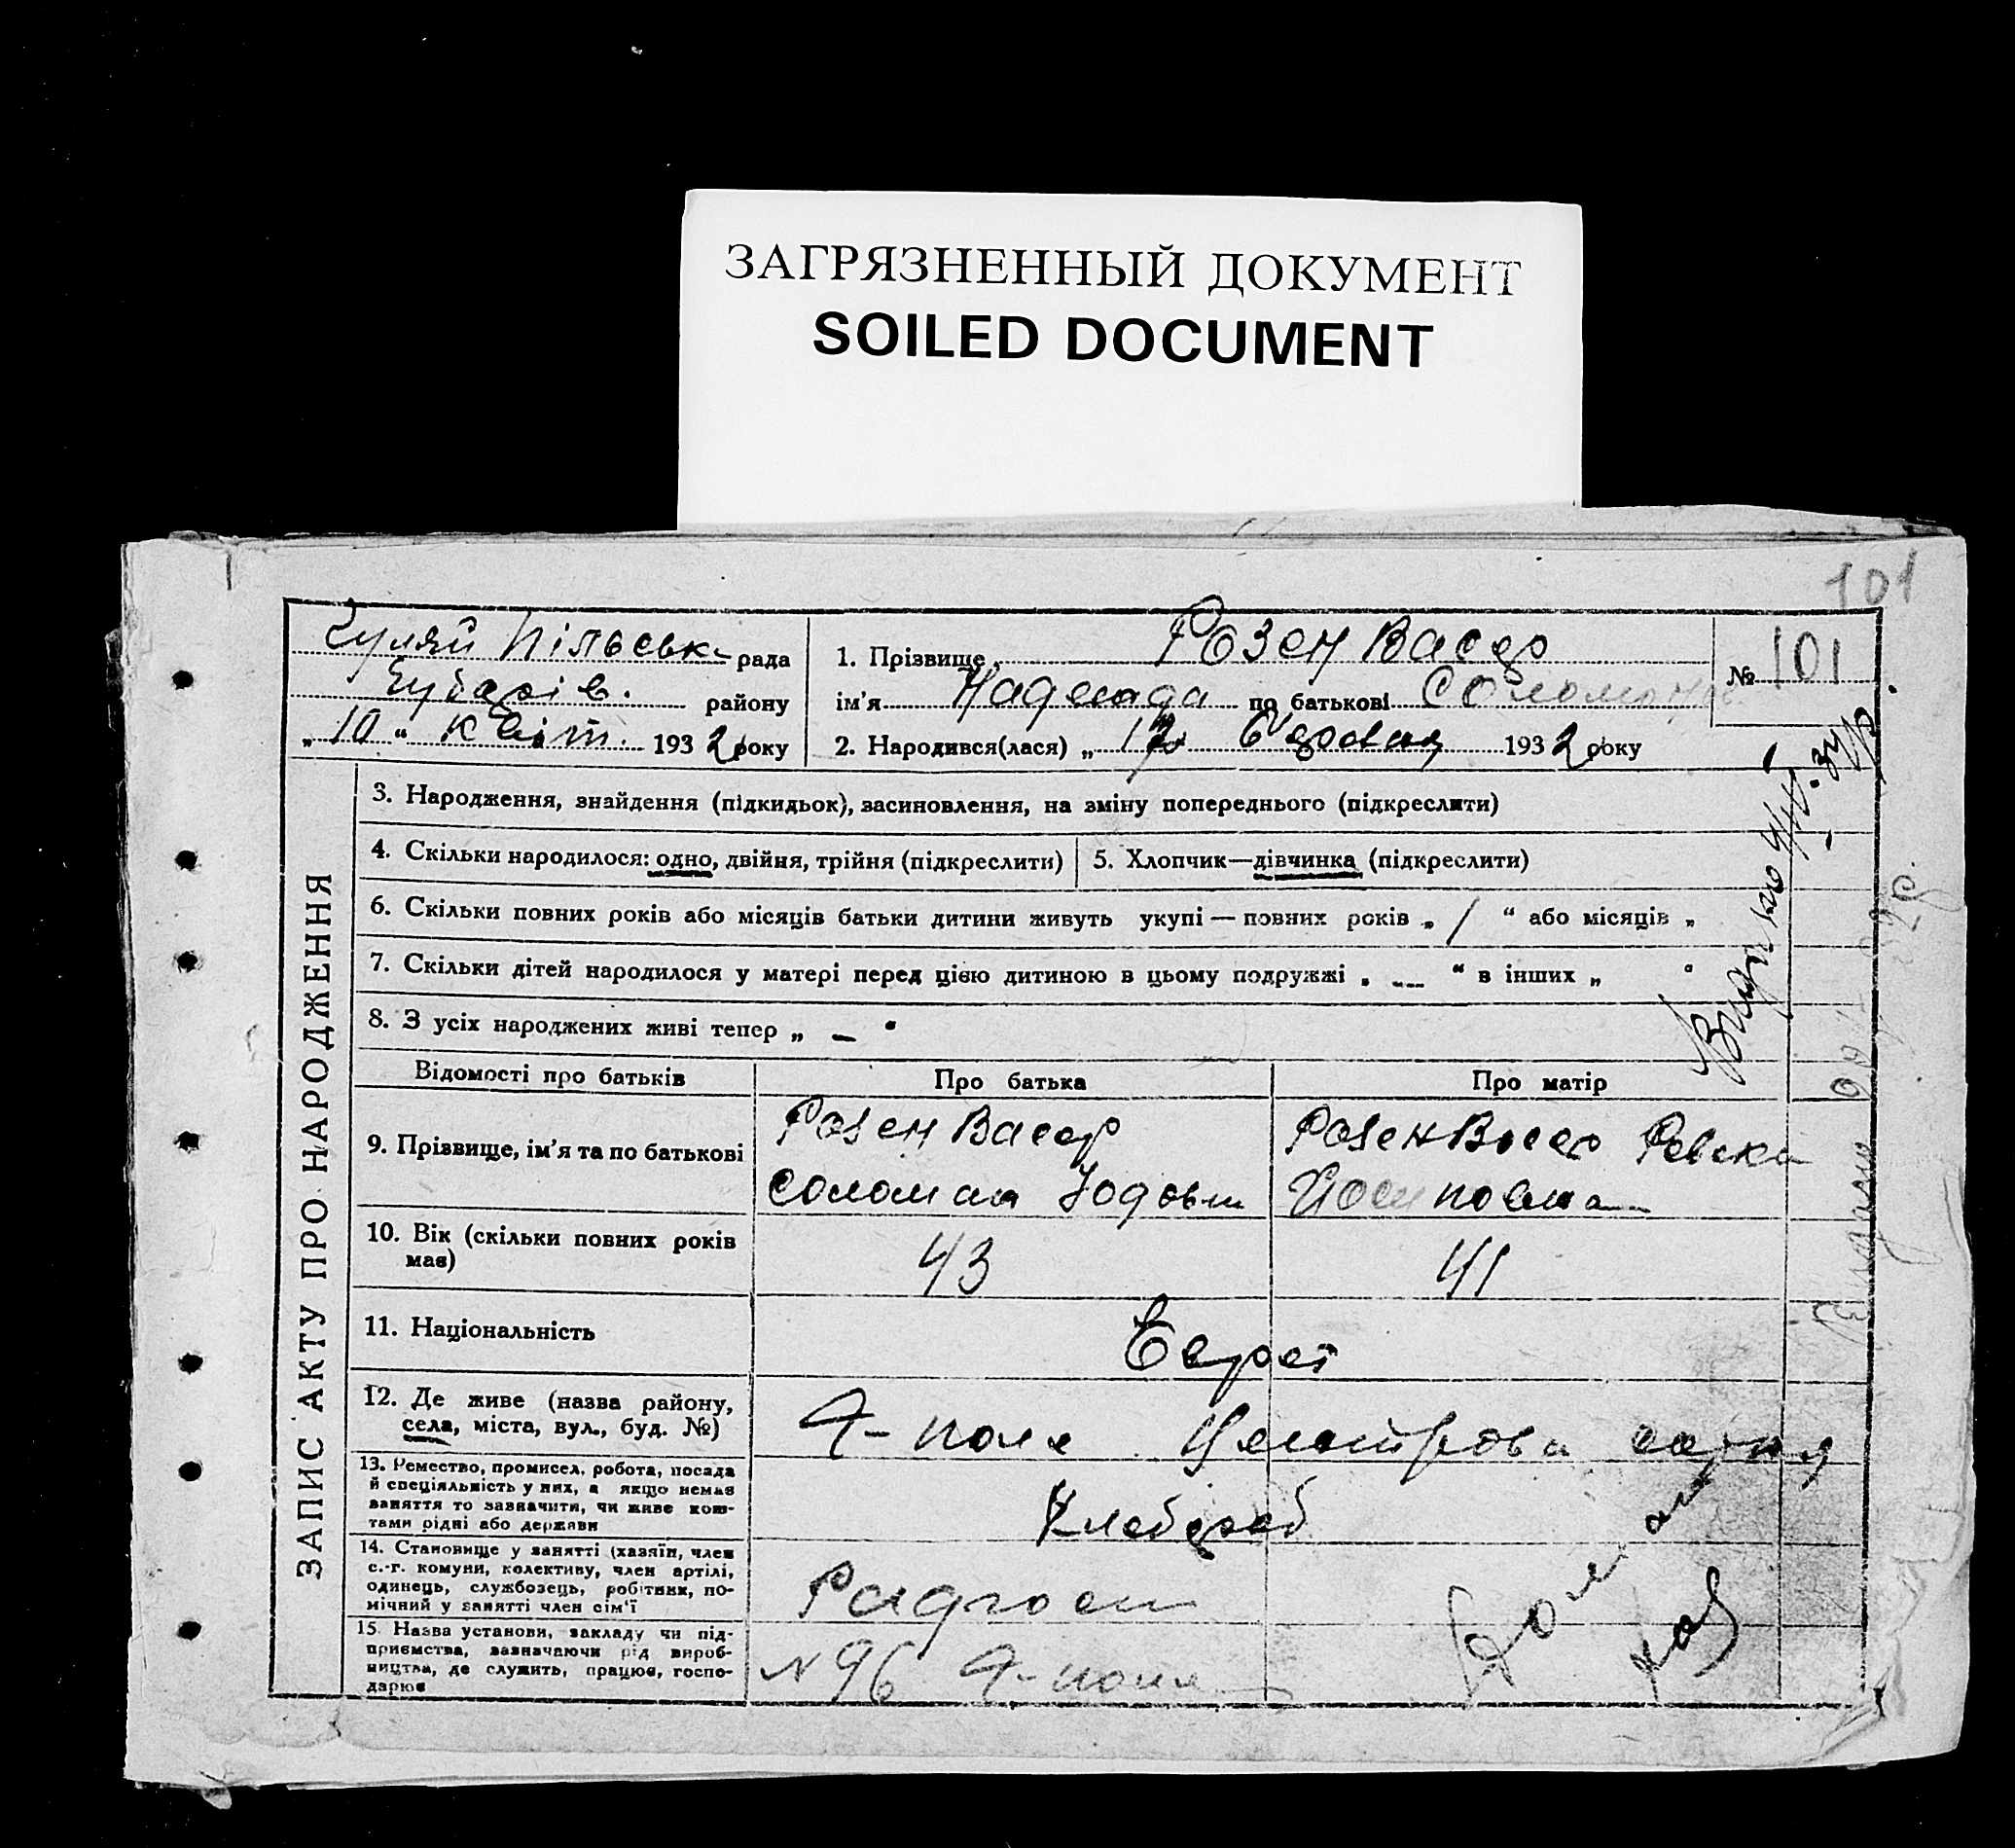 ЗАГРЯЗНЕННЫЙ ДОКУМЕНТ
SOILED DOCUMENT
101
Гуляй Пільськ рада
району
„ 10 " квіт. 1932 року
1. Прізвище РозенВасер
ім'я Надежда по батькові Соломонов.
2. Народився(лася) „ 1932 року
№ 101
ЗАПИС АКТУ ПРО НАРОДЖЕННЯ
3. Народження, знайдення (підкидьок), засиновлення, на зміну попереднього (підкреслити)
4. Скільки народилося: одно, двійня, трійня (підкреслити)
5. Хлопчик—дівчинка (підкреслити)
6. Скільки повних років або місяців батьки дитини живуть укупі — повних років „ / " або місяців „
7. Скільки дітей народилося у матері перед цією дитиною в цьому подружжі „ — " в інших „ "
8. З усіх народжених живі тепер „ — "
Відомості про батьків
Про батька
Про матір
9. Прізвище, ім'я та по батькові
РозенВасер
Соломон
РозенВасер Ревека
Иосиповна
10. Вік (скільки повних років
має)
43
41
11. Національність
Євреї
12. Де живе (назва району,
села, міста, вул., буд. №)
13. Ремество, промисел, робота, посада
й спеціяльність у них, а якщо немає
заняття то зазначити, чи живе кош-
тами рідні або держави
Хлебороб
14. Становище у занятті (хазяїн, член
с.-г. комуни, колективу, член артілі,
одинець, службовець, робітник, по-
мічний у занятті член сім'ї
Радгосп
15. Назва установи, закладу чи під-
приємства, зазначаючи рід вироб-
ництва, де служить, працює, госпо-
дарює
№ 96